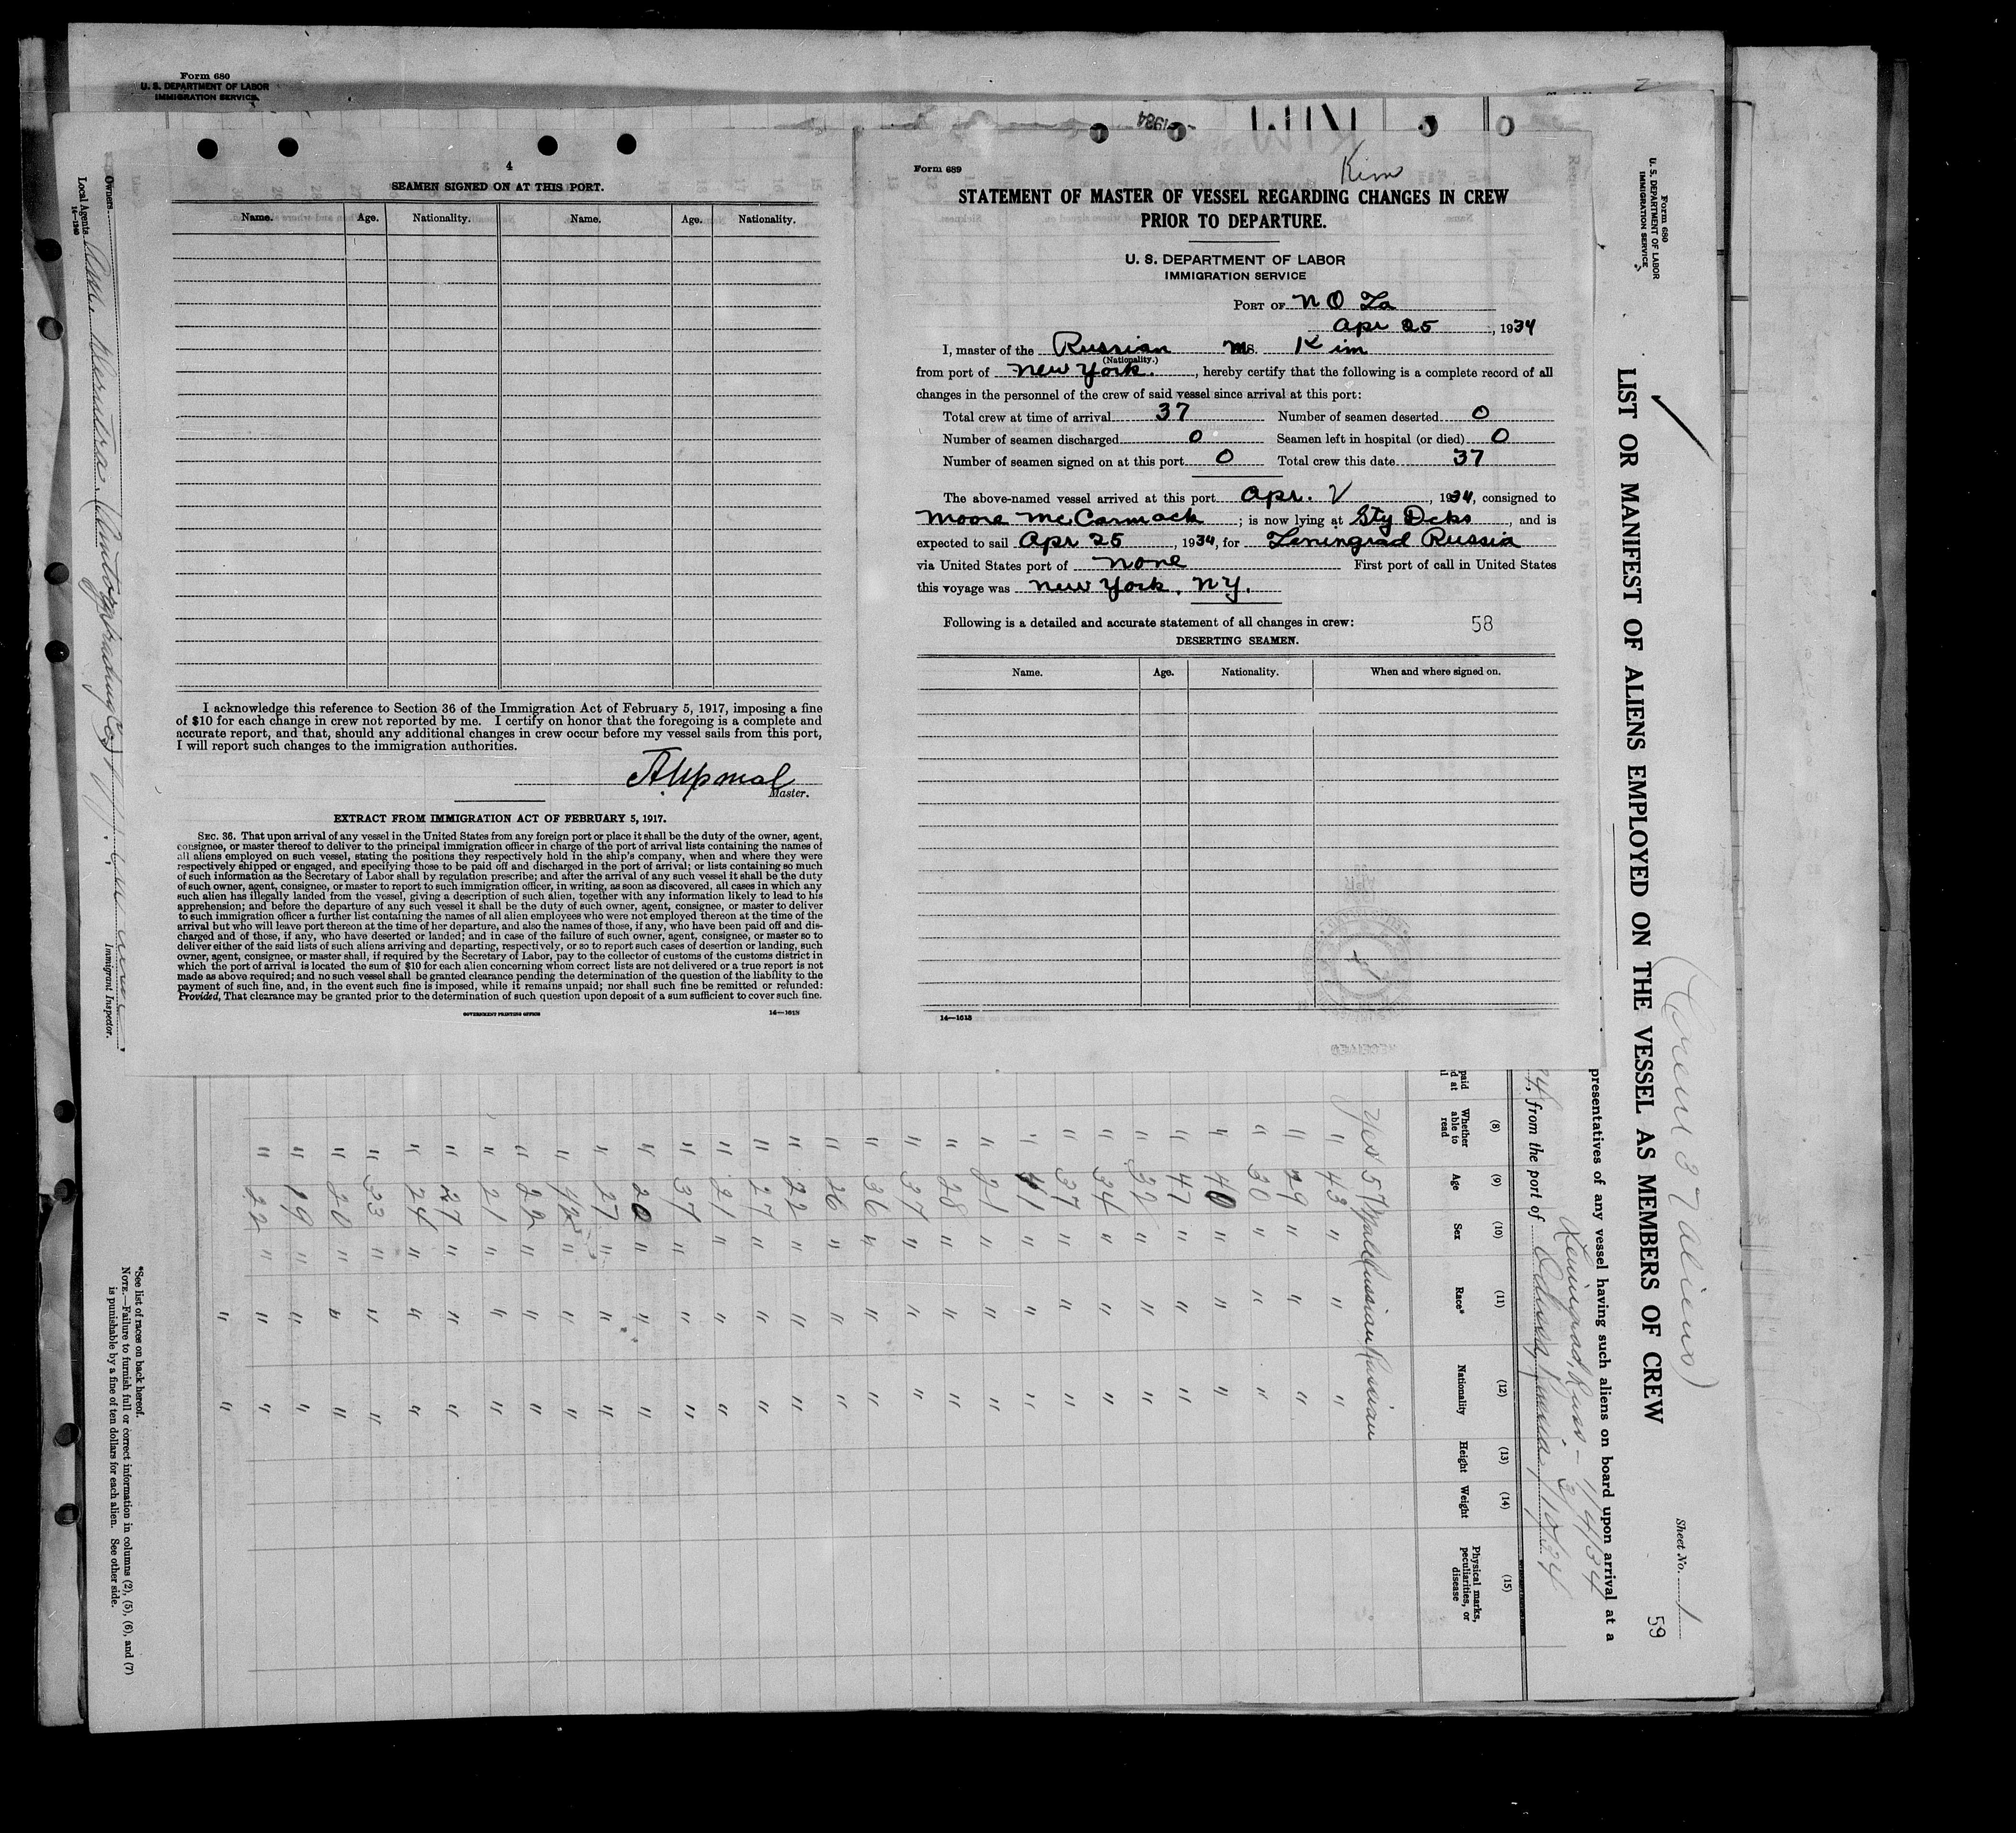 Form 680
U. S. DEPARTMENT OF LABOR
IMMIGRATION SERVICE
4
SEAMEN SIGNED ON AT THIS PORT.
Name. Age. Nationality. Name. Age. Nationality.
I acknowledge this reference to Section 36 of the Immigration Act of February 5, 1917, imposing a fine
of $10 for each change in crew not reported by me. I certify on honor that the foregoing is a complete and
accurate report, and that, should any additional changes in crew occur before my vessel sails from this port,
I will report such changes to the immigration authorities.
Master.
EXTRACT FROM IMMIGRATION ACT OF FEBRUARY 5, 1917.
SEC. 36. That upon arrival of any vessel in the United States from any foreign port or place it shall be the duty of the owner, agent,
consignee, or master thereof to deliver to the principal immigration officer in charge of the port of arrival lists containing the names of
all aliens employed on such vessel, stating the positions they respectively hold in the ship's company, when and where they were
respectively shipped or engaged, and specifying those to be paid off and discharged in the port of arrival; or lists containing so much
of such information as the Secretary of Labor shall by regulation prescribe; and after the arrival of any such vessel it shall be the duty
of such owner, agent, consignee, or master to report to such immigration officer, in writing, as soon as discovered, all cases in which any
such alien has illegally landed from the vessel, giving a description of such alien, together with any information likely to lead to his
apprehension; and before the departure of any such vessel it shall be the duty of such owner, agent, consignee, or master to deliver
to such immigration officer a further list containing the names of all alien employees who were not employed thereon at the time of the
arrival but who will leave port thereon at the time of her departure, and also the names of those, if any, who have been paid off and dis-
charged and of those, if any, who have deserted or landed; and in case of the failure of such owner, agent, consignee, or master so to
deliver either of the said lists of such aliens arriving and departing, respectively, or so to report such cases of desertion or landing, such
owner, agent, consignee, or master shall, if required by the Secretary of Labor, pay to the collector of customs of the customs district in
which the port of arrival is located the sum of $10 for each alien concerning whom correct lists are not delivered or a true report is not
made as above required; and no such vessel shall be granted clearance pending the determination of the question of the liability to the
payment of such fine, and, in the event such fine is imposed, while it remains unpaid; nor shall such fine be remitted or refunded:
Provided, That clearance may be granted prior to the determination of such question upon deposit of a sum sufficient to cover such fine.
GOVERNMENT PRINTING OFFICE 14—1618
Form 689
Kim
STATEMENT OF MASTER OF VESSEL REGARDING CHANGES IN CREW
PRIOR TO DEPARTURE.
U. S. DEPARTMENT OF LABOR
IMMIGRATION SERVICE
PORT OF N O La
Apr 25, 1934
I, master of the Russian MS. Kim
(Nationality.)
from port of New York., hereby certify that the following is a complete record of all
changes in the personnel of the crew of said vessel since arrival at this port:
Total crew at time of arrival 37 Number of seamen deserted 0
Number of seamen discharged 0 Seamen left in hospital (or died) 0
Number of seamen signed on at this port 0 Total crew this date 37
The above-named vessel arrived at this port Apr. , 1934, consigned to
Moore McCormack; is now lying at Sty Dcks, and is
expected to sail Apr 25, 1934, for Leningrad Russia
via United States port of None First port of call in United States
this voyage was New York, NY.
Following is a detailed and accurate statement of all changes in crew: 58
DESERTING SEAMEN.
Name. Age. Nationality. When and where signed on.
14—1618
Form 680
U. S. DEPARTMENT OF LABOR
IMMIGRATION SERVICE
Sheet No. 1
59
(Crew 37 aliens)
LIST OR MANIFEST OF ALIENS EMPLOYED ON THE VESSEL AS MEMBERS OF CREW
presentatives of any vessel having such aliens on board upon arrival at a
Leningrad, Russ - 1/4/34
, from the port of Odessa, Russia,
(8) (9) (10) (11) (12) (13) (14) (15)
Whether able to read Age Sex Race* Nationality Height Weight Physical marks, peculiarities, or disease
Yes 57 Male Russian Russian
" 43 " " "
" 29 " " "
" 30 " " "
" 40 " " "
" 47 " " "
" 32 " " "
" 34 " " "
" 37 " " "
" 41 " " "
" 21 " " "
" 28 " " "
" 37 " " "
" 36 " " "
" 26 " " "
" 22 " " "
" 27 " " "
" 21 " " "
" 37 " " "
" 20 " " "
" 27 " " "
" 42 " " "
" 22 " " "
" 21 " " "
" 27 " " "
" 24 " " "
" 33 " " "
" 20 " " "
" 19 " " "
" 22 " " "
" "
*See list of races on back hereof.
NOTE.—Failure to furnish full or correct information in columns (2), (5), (6), and (7)
is punishable by a fine of ten dollars for each alien. See other side.
Owners
Local Agents
14—1240
Immigrant Inspector.